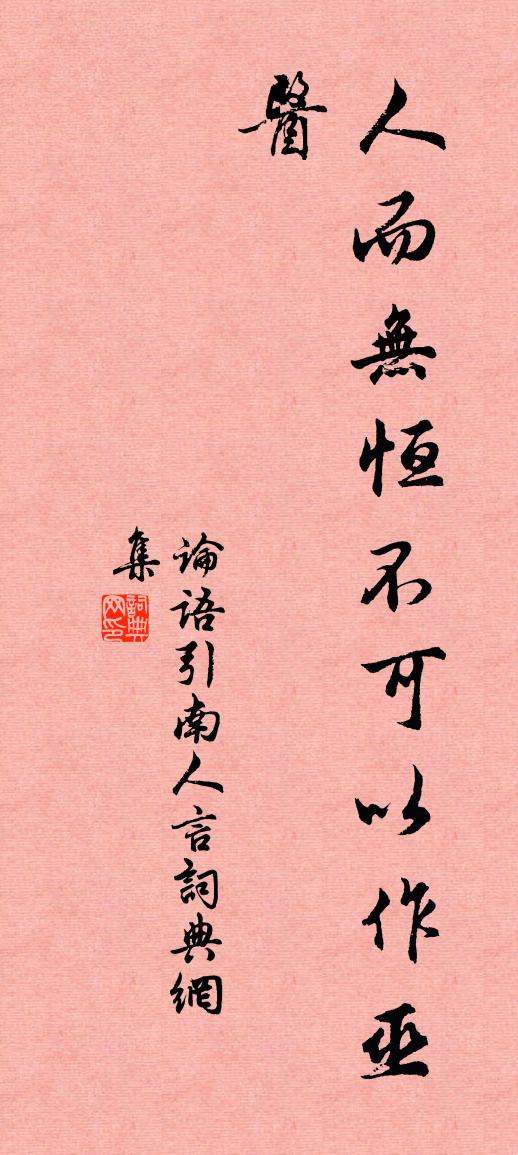 人而無恒不可以作巫
醫
論語引南人言詞典網
集
詞典
网印